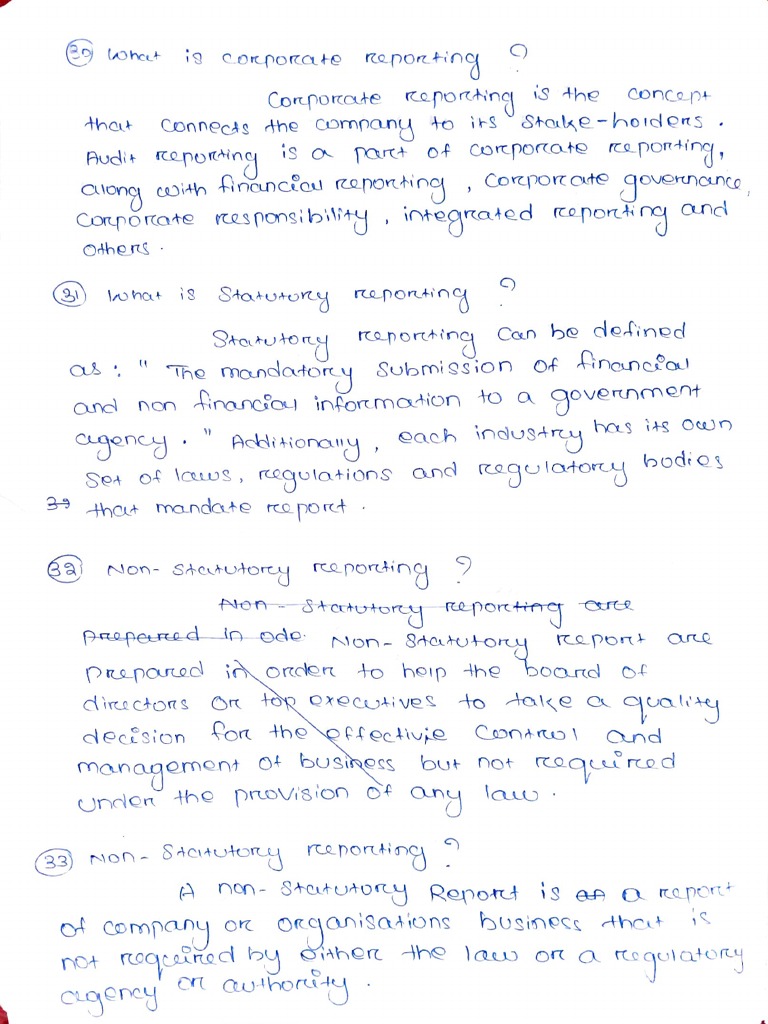 30 What is corporate reporting ?
Corporate reporting is the concept
that connects the company to its stake-holders.
Audit reporting is a part of corporate reporting,
along with financial reporting, corporate governance,
corporate responsibility, integrated reporting and
others.
31 What is Statutory reporting ?
Statutory reporting can be defined
as : " The mandatory submission of financial
and non financial information to a government
agency. " Additionally, each industry has its own
set of laws, regulations and regulatory bodies
39 that mandate report.
32 Non-Statutory reporting ?
Non-Statutory reporting are
Prepared in ode. Non-Statutory report are
prepared in order to help the board of
directors or top executives to take a quality
decision for the effectivie control and
management of business but not required
under the provision of any law.
33 Non-Statutory reporting ?
A non-Statutory Report is an a report
of company or organisations business that is
not required by either the law or a regulatory
agency or authority.